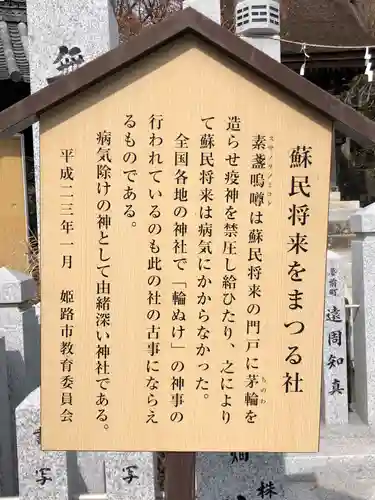 蘇民将来をまつる社
素盞嗚噂は蘇民将来の門戸に茅輪を
スサノヲノミコト
ちのわ
造らせ疫神を禁圧し給ひたり、之により
て蘇民将来は病気にかからなかった。
全国各地の神社で「輪ぬけ」の神事の
行われているのも此の社の古事にならえ
るものである。
病気除けの神として由緒深い神社である。
平成二三年一月　姫路市教育委員会
遠周知真